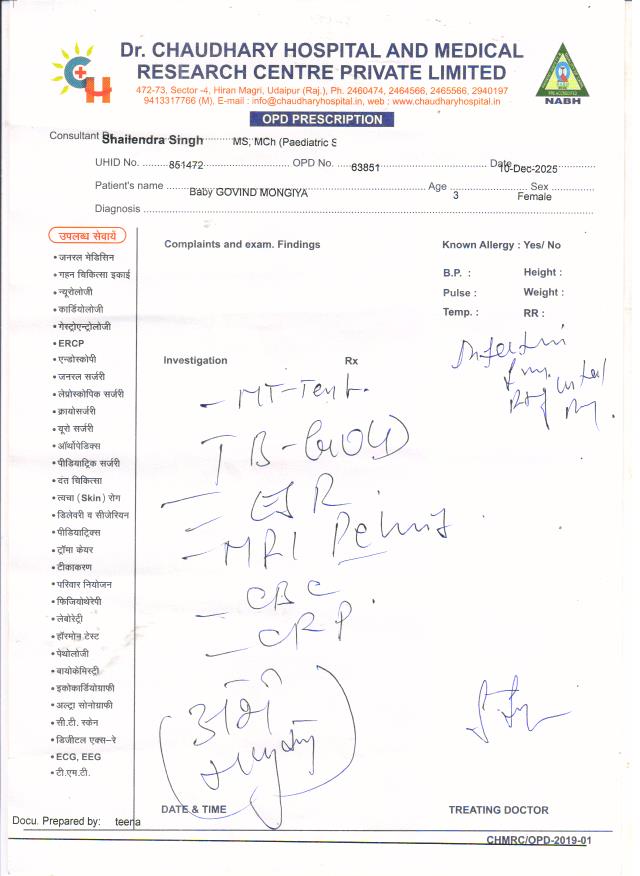 Dr. CHAUDHARY HOSPITAL AND MEDICAL
RESEARCH CENTRE PRIVATE LIMITED
472-73, Sector -4, Hiran Magri, Udaipur (Raj.), Ph. 2460474, 2464566, 2465566, 2940197
9413317766 (M), E-mail : info@chaudharyhospital.in, web : www.chaudharyhospital.in
NABH
OPD PRESCRIPTION
Consultant Dr. Shailendra Singh MS, MCh (Paediatric S
UHID No. 851472 OPD No. 63851 Date 10-Dec-2025
Patient's name Baby GOVIND MONGIYA Age 3 Sex Female
Diagnosis
उपलब्ध सेवायें
• जनरल मेडिसिन
• गहन चिकित्सा इकाई
• न्यूरोलोजी
• कार्डियोलोजी
• गेस्ट्रोएन्ट्रोलोजी
• ERCP
• एन्डोस्कोपी
• जनरल सर्जरी
• लेप्रोस्कोपिक सर्जरी
• क्रायोसर्जरी
• यूरो सर्जरी
• ऑर्थोपेडिक्स
• पीडियाट्रिक सर्जरी
• दंत चिकित्सा
• त्वचा (Skin) रोग
• डिलेवरी व सीजेरियन
• पीडियाट्रिक्स
• ट्रॉमा केयर
• टीकाकरण
• परिवार नियोजन
• फिजियोथेरेपी
• लेबोरेट्री
• हॉरमोन टेस्ट
• पेथोलोजी
• बायोकेमिस्ट्री
• इकोकार्डियोग्राफी
• अल्ट्रा सोनोग्राफी
• सी.टी. स्केन
• डिजीटल एक्स-रे
• ECG, EEG
• टी.एम.टी.
Complaints and exam. Findings
Known Allergy : Yes/ No
B.P. : Height :
Pulse : Weight :
Temp. : RR :
Investigation Rx
- MT-Test.
TB-GOLD
- ESR
- MRI
- CBC
- CRP.
DATE & TIME
TREATING DOCTOR
Docu. Prepared by: teena
CHMRC/OPD-2019-01